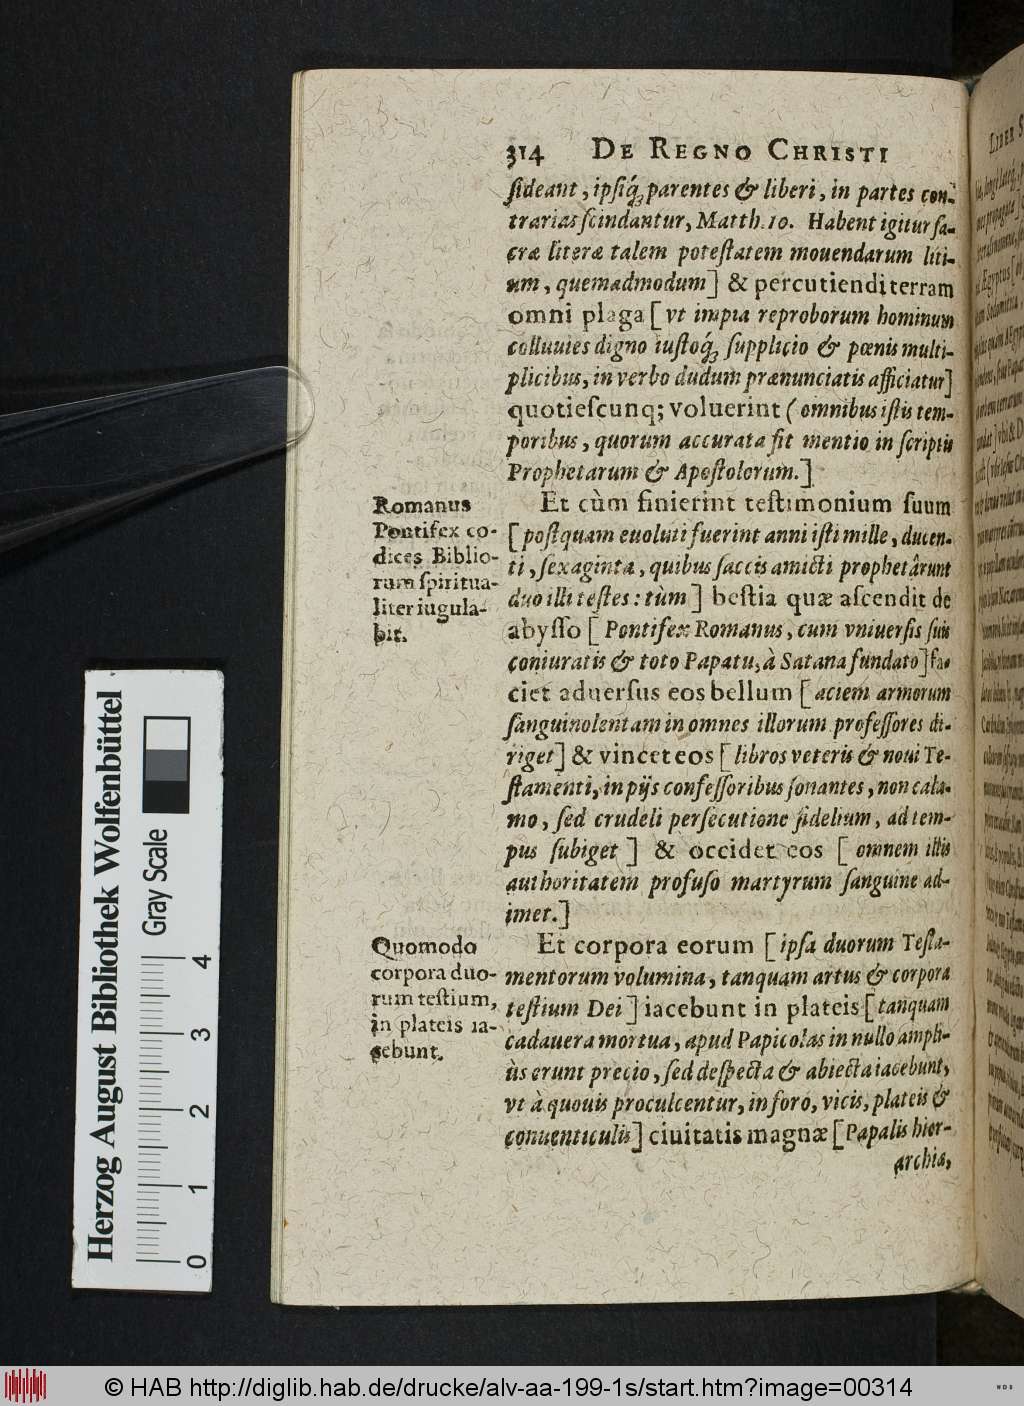 314 DE REGNO CHRISTI
ſideant, ipſiq́; parentes & liberi, in partes con-
trarias ſcindantur, Matth. 10. Habent igitur ſa-
cræ literæ talem poteſtatem mouendarum liti-
um, quemadmodum] & percutiendi terram
omni plaga [vt impia reproborum hominum
colluuies digno iuſtoq́; ſupplicio & pœnis multi-
plicibus, in verbo dudum prænunciatis afficiatur]
quotieſcunq; voluerint (omnibus iſtis tem-
poribus, quorum accurata fit mentio in ſcriptis
Prophetarum & Apoſtolorum.]
Et cùm finierint teſtimonium ſuum
[poſtquam euoluti fuerint anni iſti mille, ducen-
ti, ſexaginta, quibus ſaccis amicti prophetârunt
duo illi teſtes: tùm] beſtia quæ aſcendit de
abyſſo [Pontifex Romanus, cum vniuerſis ſuis
coniuratis & toto Papatu, à Satana fundato] fa-
ciet aduerſus eos bellum [aciem armorum
ſanguinolentam in omnes illorum profeſſores di-
riget] & vincet eos [libros veteris & noui Te-
ſtamenti, in pijs confeſſoribus ſonantes, non cala-
mo, ſed crudeli perſecutione fidelium, ad tem-
pus ſubiget] & occidet eos [omnem illis
authoritatem profuſo martyrum ſanguine ad-
imet.]
Et corpora eorum [ipſa duorum Teſta-
mentorum volumina, tanquam artus & corpora
teſtium Dei] iacebunt in plateis [tanquam
cadauera mortua, apud Papicolas in nullo ampli-
ùs erunt precio, ſed deſpecta & abiecta iacebunt,
vt à quouis proculcentur, in foro, vicis, plateis &
conuenticulis] ciuitatis magnæ [Papalis hier-
archia,
Romanus
Pontifex co-
dices Biblio-
rum ſpiritua-
liter iugula-
bit.
Quomodo
corpora duo-
rum teſtium,
in plateis ia-
cebunt.
LIBER
Herzog August Bibliothek Wolfenbüttel
Gray Scale
0 1 2 3 4
© HAB http://diglib.hab.de/drucke/alv-aa-199-1s/start.htm?image=00314